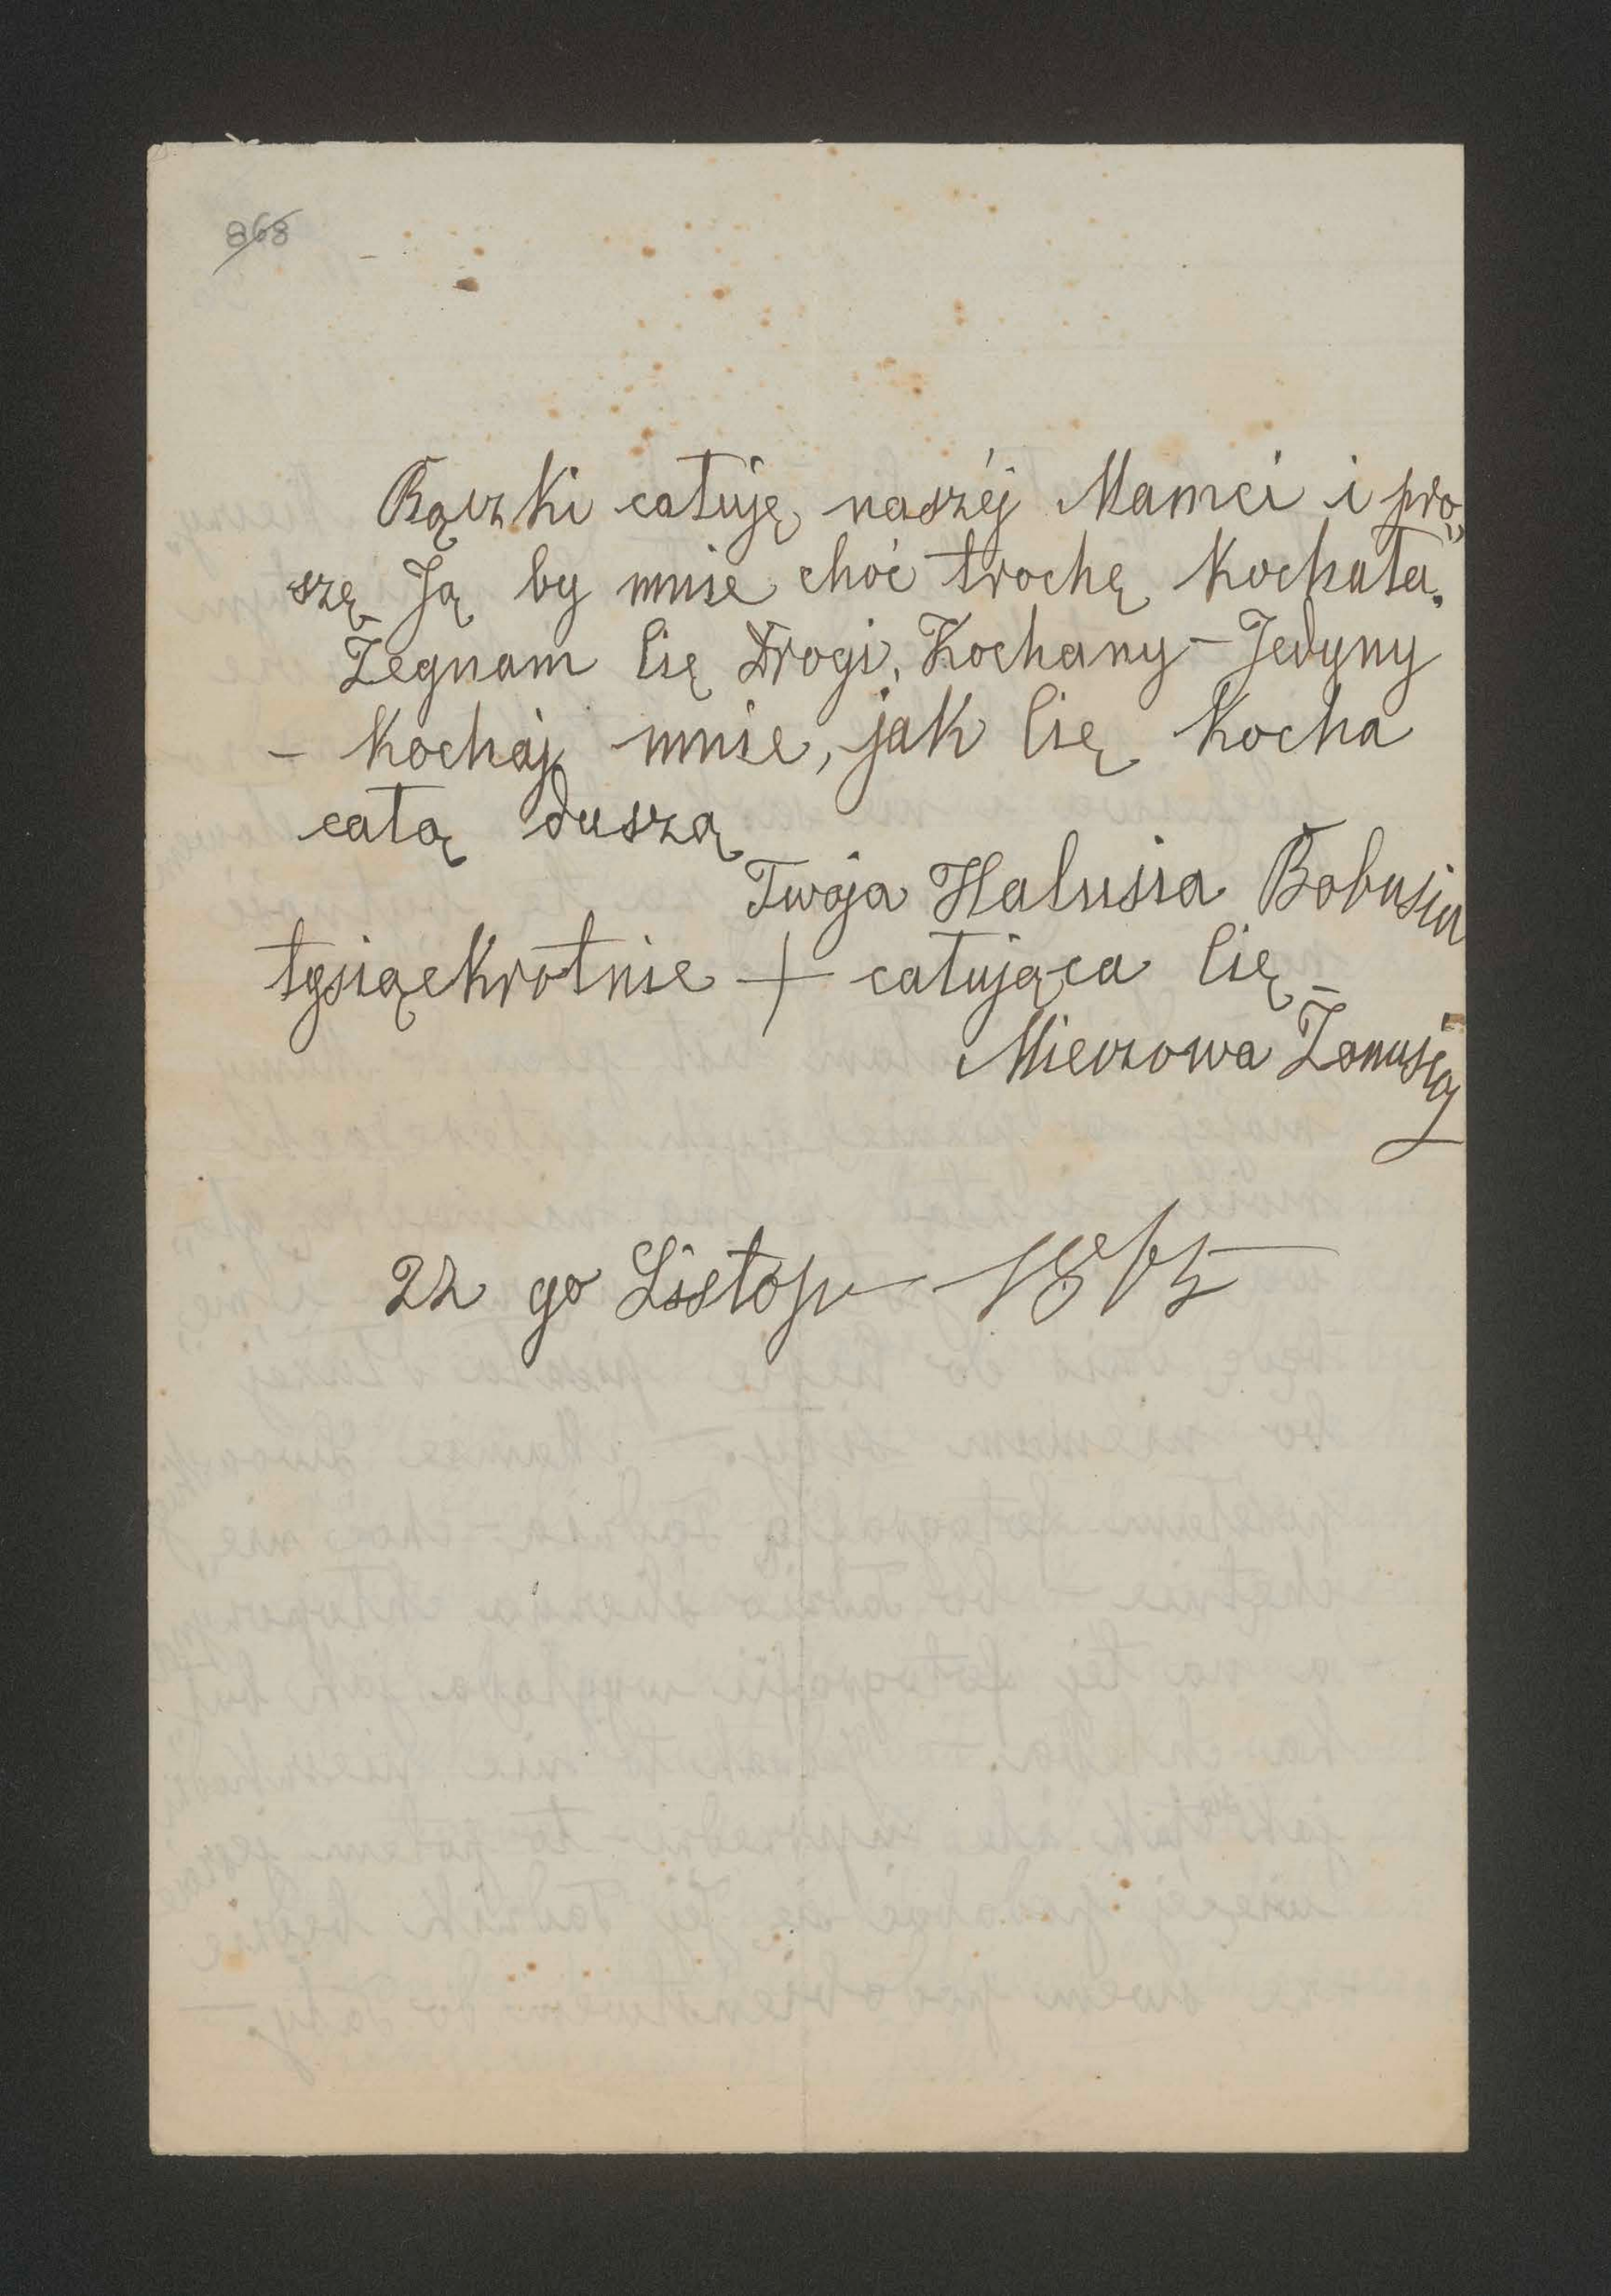 868
Rączki całuję naszéj Mamci i pro„
szę Ją by mnie choć trochę kochała.
Żegnam Cię Drogi, Kochany – Jedyny
– kochaj mnie, jak Cię kocha
całą duszą
Twoja Halusia Bobusia
tysiąckrotnie + całująca Cię
Mieczowa Żonusia
22 go Listop